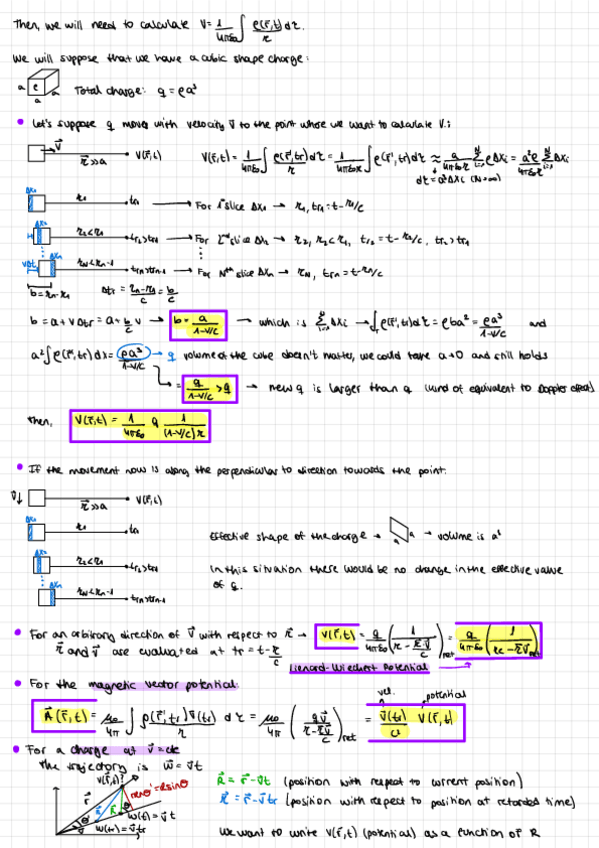 Then, we will need to calculate V = 1/4πε₀ ∫ ρ(r⃗,t)/r dτ.
We will suppose that we have a cubic shape charge:
a ρ a a Total charge: q = ρa³
• Let's suppose q moves with velocity v⃗ to the point where we want to calculate V.:
v⃗ r⃗>>a V(r⃗,t) V(r⃗,t) = 1/4πε₀ ∫ ρ(r⃗',tr)/r dτ = 1/4πε₀r ∫ ρ(r⃗',tr) dτ ≈ a²/4πε₀r Σ ρΔXi = a²ρ/4πε₀r Σ ΔXi
dτ = a²ΔXi (N→∞)
ΔX₁ r₁ tr₁ → For 1st slice ΔX₁ → r₁, tr₁ = t - r₁/c
ΔX₂ r₂<r₁ tr₂>tr₁ → For 2nd slice ΔX₂ → r₂, r₂<r₁, tr₂ = t - r₂/c, tr₂>tr₁
VΔt ΔXn rN<rN-1 trn>trn-1 → For Nth slice ΔXn → rN, trn = t - rN/c
b = rn - r1 Δtr = rn-r1/c = b/c
b = a + vΔtr = a + b/c v → b = a/1-v/c → which is Σ ΔXi → ∫ρ(r⃗',tr) dτ = ρba² = ρa³/1-v/c and
a² ∫ρ(r⃗',tr) dx = ρa³/1-v/c → q volume of the cube doesn't matter, we could take a→0 and still holds
= q/1-v/c > q → new q is larger than q (kind of equivalent to Doppler effect)
Then, V(r⃗,t) = 1/4πε₀ q 1/(1-v/c)r
• If the movement now is along the perpendicular to direction towards the point:
v⃗↓ r⃗>>a V(r⃗,t)
ΔX₁ r₁ tr₁ Effective shape of the charge → a a → volume is a³
ΔX₂ r₂<r₁ tr₂>tr₁ In this situation there would be no change in the effective value
ΔXn rN<rN-1 trn>trn-1 of q.
• For an arbitrary direction of v⃗ with respect to r⃗ → V(r⃗,t) = q/4πε₀ (1/r - r⃗·v⃗/c)ret = qc/4πε₀ (1/rc - r⃗·v⃗)ret
r⃗ and v⃗ are evaluated at tr = t - r/c
Lienard-Wiechert Potential
• For the magnetic vector potential:
vel. potential
A⃗(r⃗,t) = μ₀/4π ∫ ρ(r⃗',tr)v⃗(tr)/r dτ = μ₀/4π (qv⃗/r - r⃗·v⃗/c)ret = v⃗(tr)/c² V(r⃗,t)
• For a charge at v⃗ = cte
The trajectory is w⃗ = v⃗t
V(r⃗,t)? R⃗ = r⃗ - v⃗t (position with respect to current position)
r⃗ = r⃗ - v⃗tr (position with respect to position at retarded time)
w(tr) = v⃗tr w(t) = v⃗t
We want to write V(r⃗,t) (potential) as a function of R